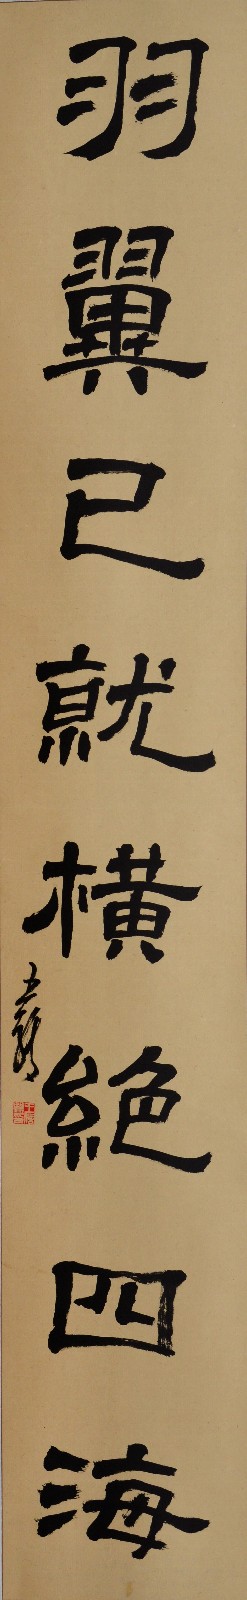 羽翼已就橫絕四海